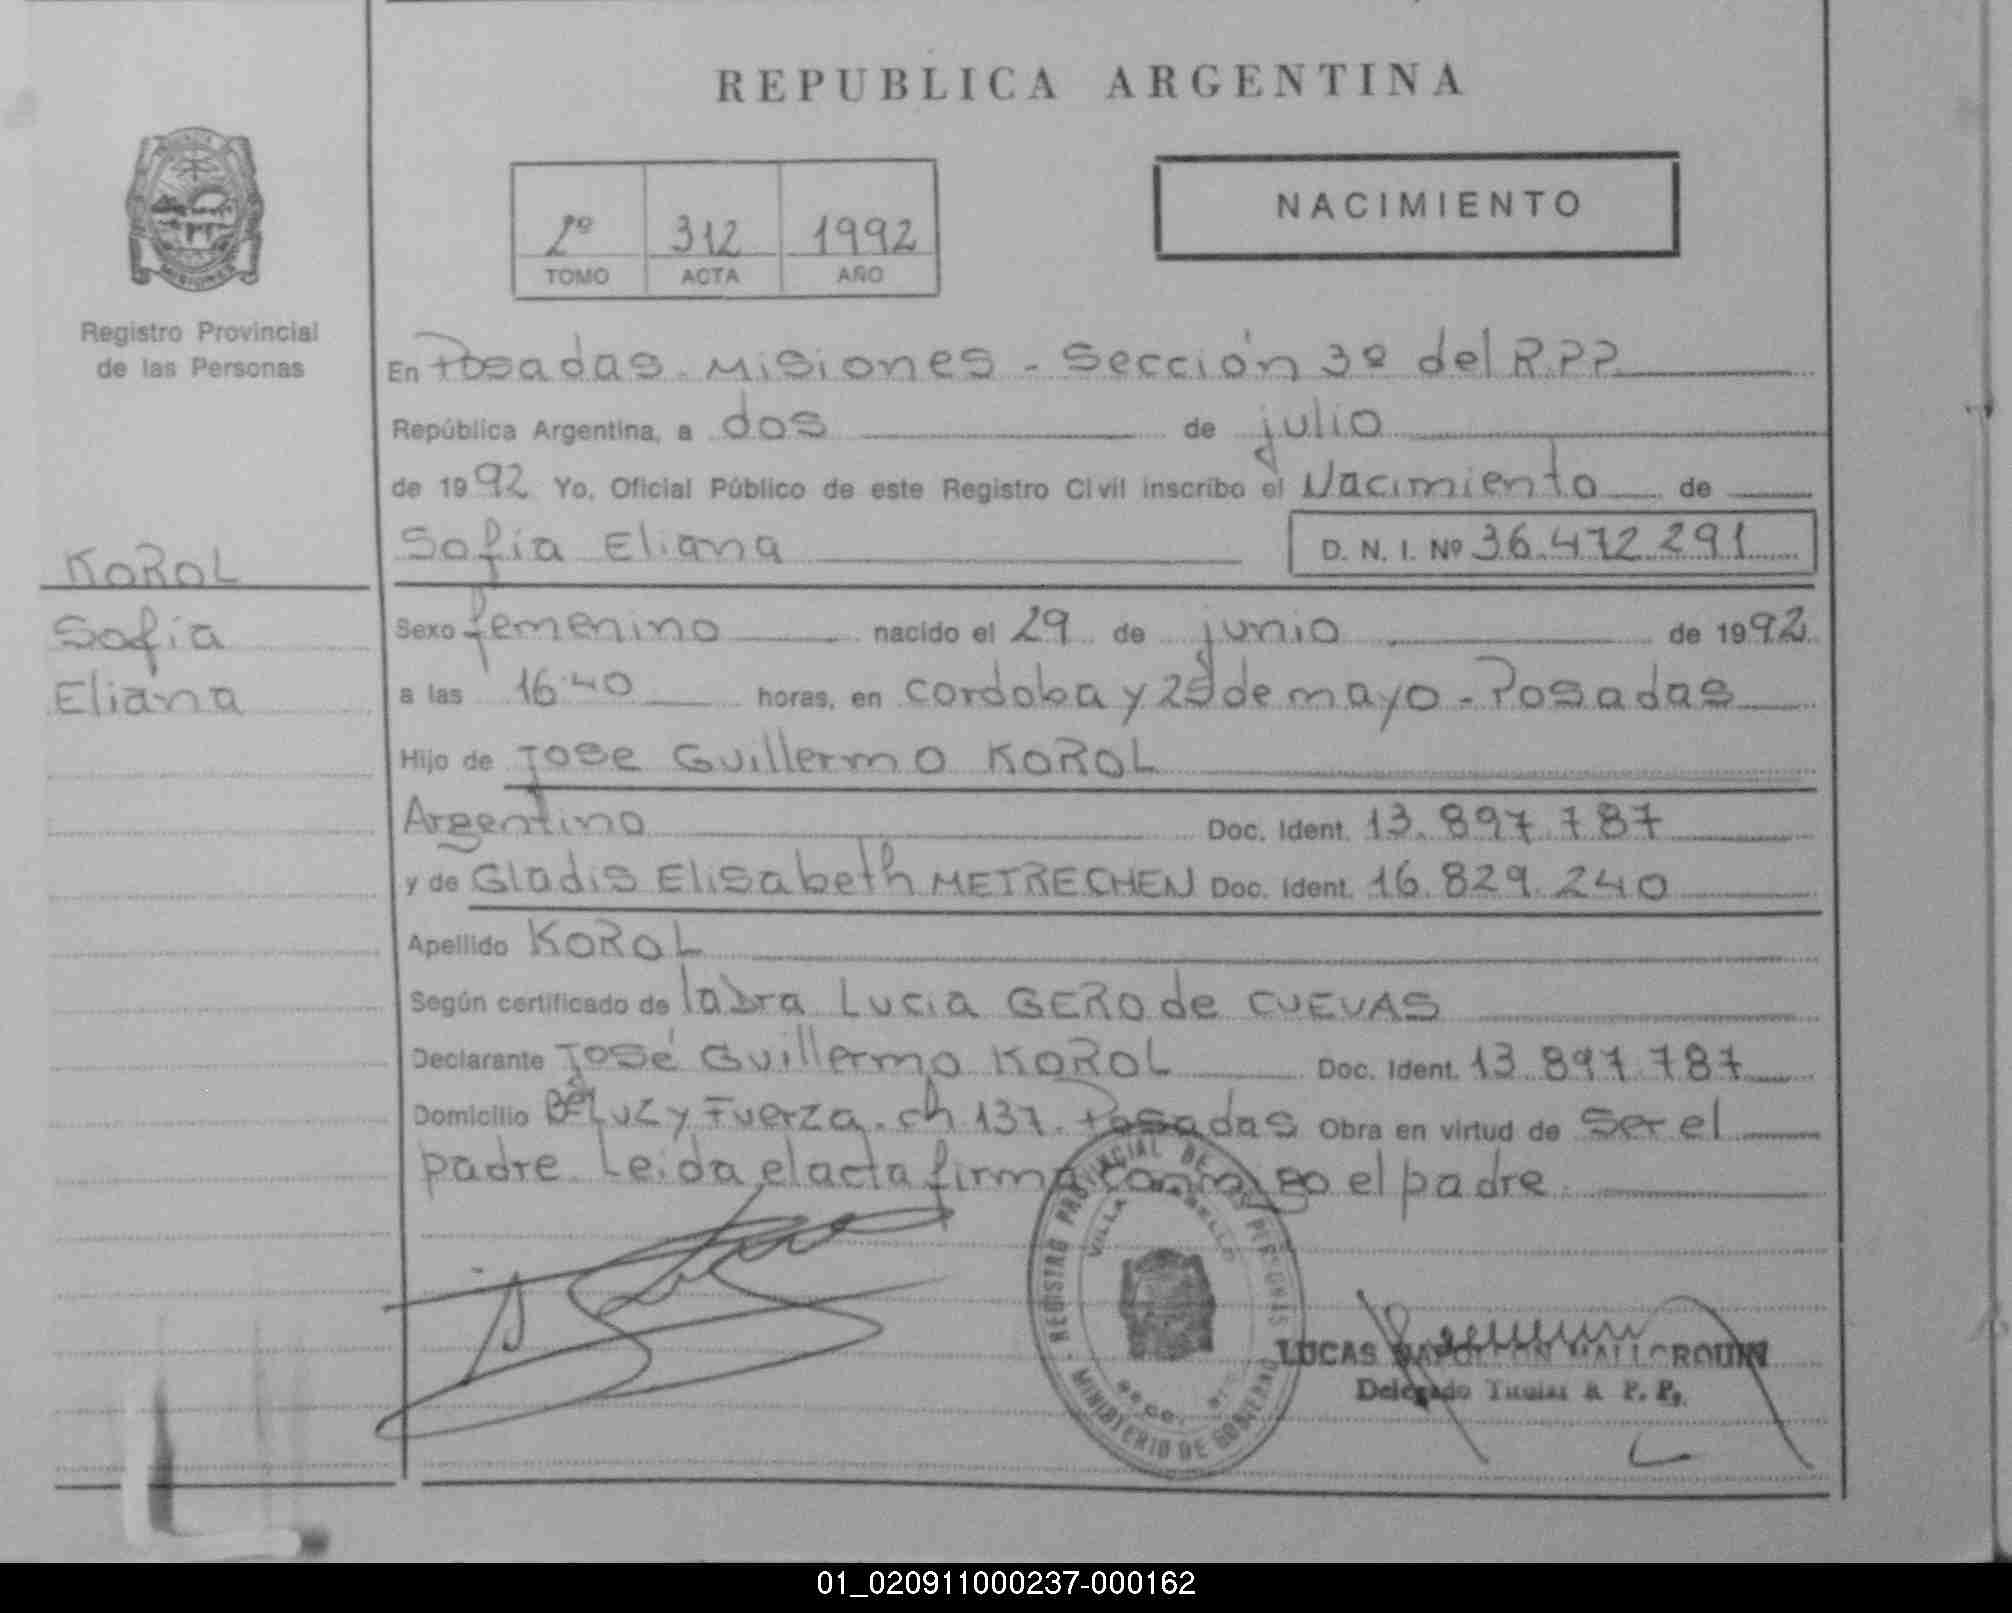 REPUBLICA ARGENTINA
NACIMIENTO
2º 312 1992
TOMO ACTA AÑO
MISIONES
Registro Provincial
de las Personas
KOROL
Sofía
Eliana
En Posadas. Misiones - Sección 3º del R.P.P.
República Argentina, a dos de julio
de 1992 Yo, Oficial Público de este Registro Civil inscribo el Nacimiento de
Sofía Eliana D. N. I. Nº 36.472.291
Sexo femenino nacido el 29 de junio de 1992
a las 16:40 horas, en cordoba y 25 de mayo - Posadas
Hijo de Jose Guillermo KOROL
Argentino Doc. Ident. 13.897.787
y de Gladis Elisabeth METRECHEN Doc. Ident. 16.829.240
Apellido KOROL
Según certificado de la Dra Lucia GERO de CUEVAS
Declarante José Guillermo KOROL Doc. Ident. 13.897.787
Domicilio Luz y Fuerza. ch 137. Posadas Obra en virtud de ser el
padre. Leida el acta firma conmigo el padre.
REGISTRO PROVINCIAL DE LAS PERSONAS
VILLA
MINISTERIO DE GOBIERNO
LUCAS NAPOLEON MALLORQUIN
Delegado Titular R. P. P.
01_020911000237-000162